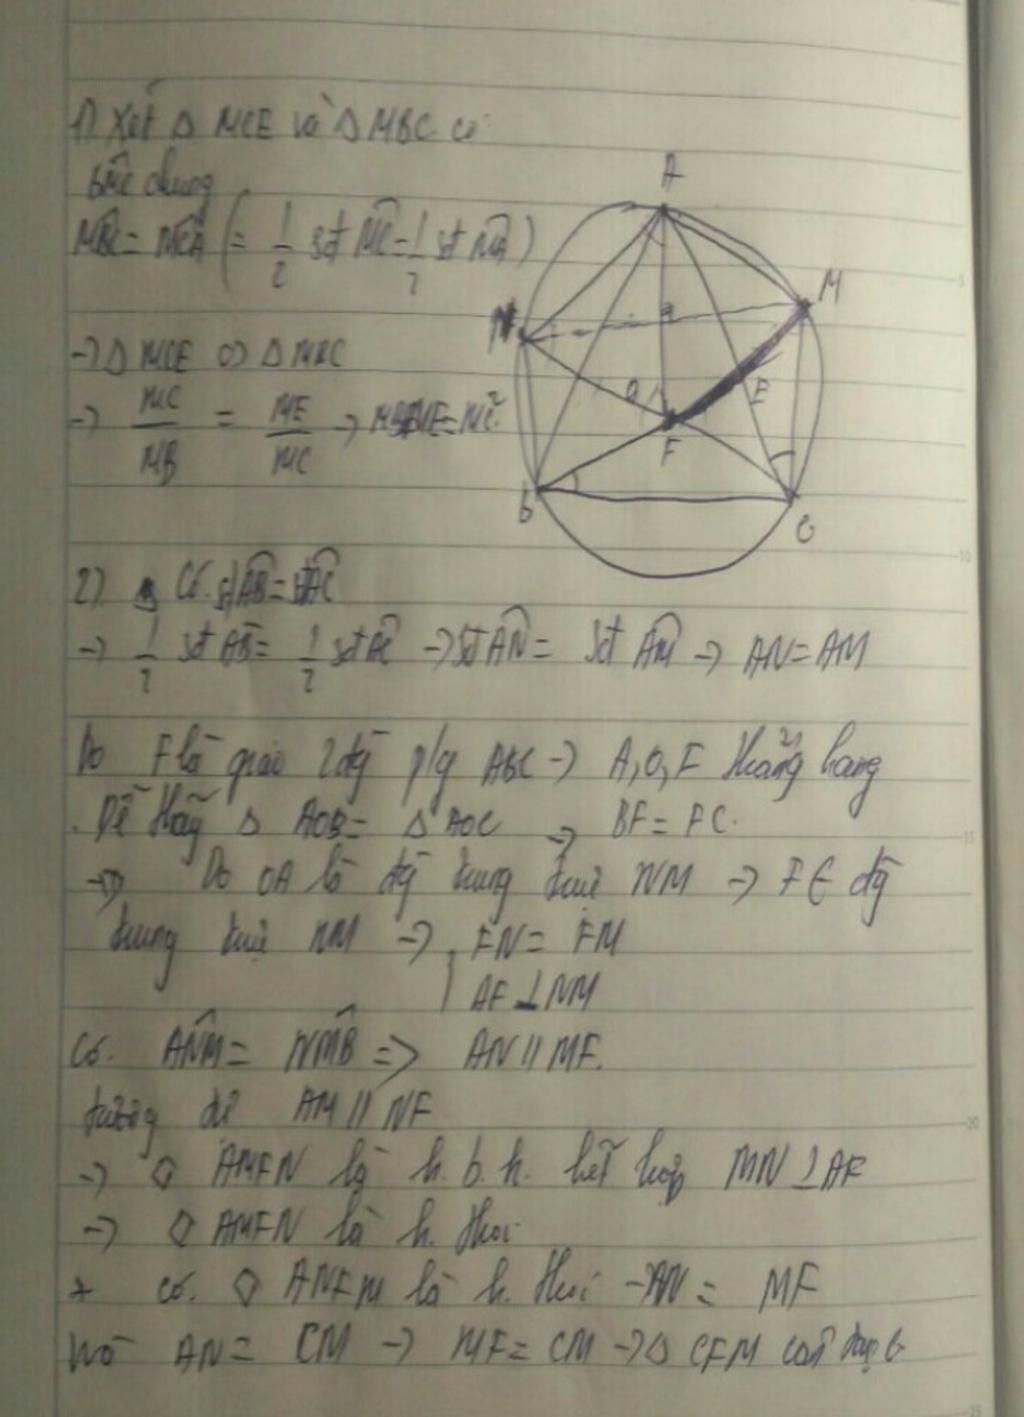 1) Xét Δ MCE và Δ MBC có
BMC chung
MBC = MCA (= 1/2 sđ MC = 1/2 sđ MA)
→ Δ MCE ∽ Δ MBC
→ MC/MB = ME/MC → MB.ME = MC²
A
M
N
O
E
F
B
C
2) Có sđ AB = sđ AC
→ 1/2 sđ AB = 1/2 sđ AC → sđ AN = sđ AM → AN = AM
Do F là giao 2 đg p/g ABC → A, O, F thẳng hàng
. Dễ thấy Δ AOB = Δ AOC → BF = FC.
→ Do OA là đg trung trực NM → F ∈ đg
trung trực NM → FN = FM
AF ⊥ NM
Có. ANM = NMB => AN // MF.
tương tự AM // NF
→ ◇ AMFN là h.b.h. kết hợp MN ⊥ AF
→ ◇ AMFN là h. thoi
+ có. ◇ ANFM là h. thoi → AN = MF
Mà AN = CM → MF = CM → Δ CFM cân tại